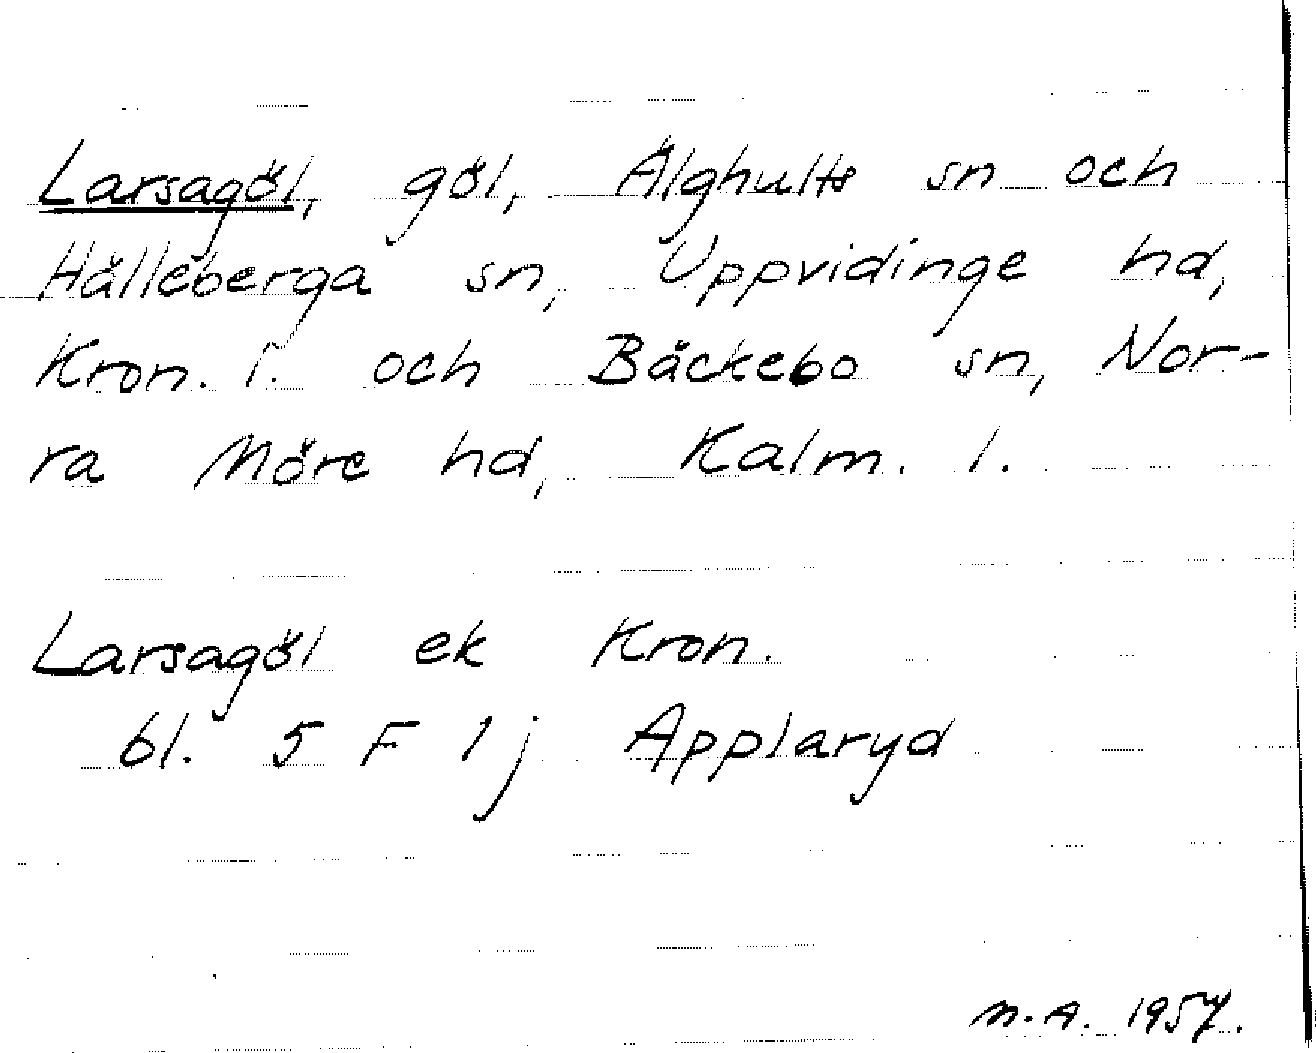 Larsagöl, göl, Älghults sn och
Hälleberga sn, Uppvidinge hd,
Kron. l. och Bäckebo sn, Nor-
ra Möre hd, Kalm. l.
Larsagöl ek Kron.
bl. 5 F 1 j Applaryd
M.A. 1957.